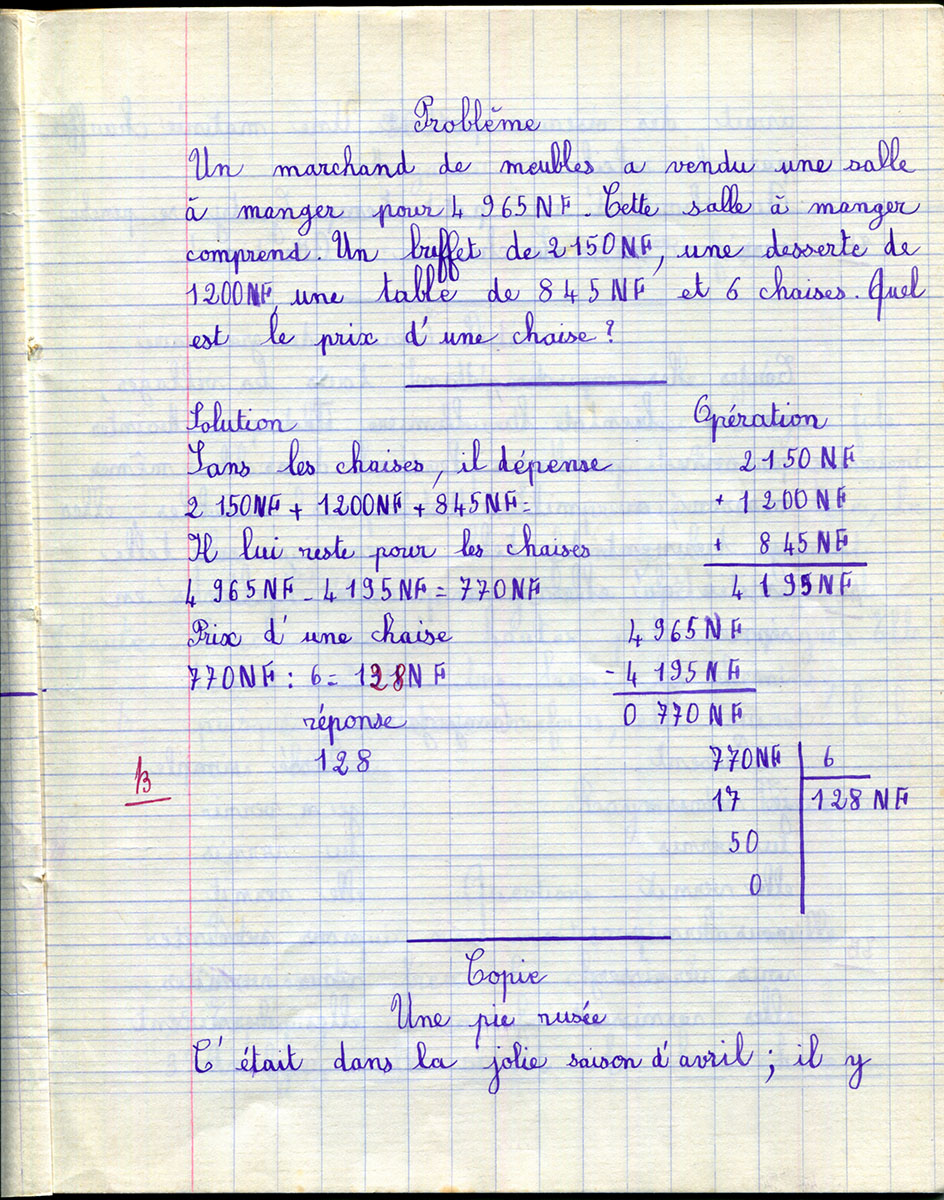 Problème
Un marchand de meubles a vendu une salle
à manger pour 4 965 NF. Cette salle à manger
comprend. Un buffet de 2150 NF, une desserte de
1200 NF, une table de 845 NF et 6 chaises. Quel
est le prix d'une chaise ?
Solution
Opération
Sans les chaises, il dépense
2 150 NF + 1200 NF + 845 NF =
Il lui reste pour les chaises
4 965 NF - 4 195 NF = 770 NF
Prix d'une chaise
770 NF : 6 = 128 NF
réponse
128
B
2150 NF
+ 1 200 NF
+ 845 NF
4 195 NF
4 965 NF
- 4 195 NF
0 770 NF
770 NF 6
17 128 NF
50
0
Copie
Une pie rusée
C'était dans la jolie saison d'avril ; il y